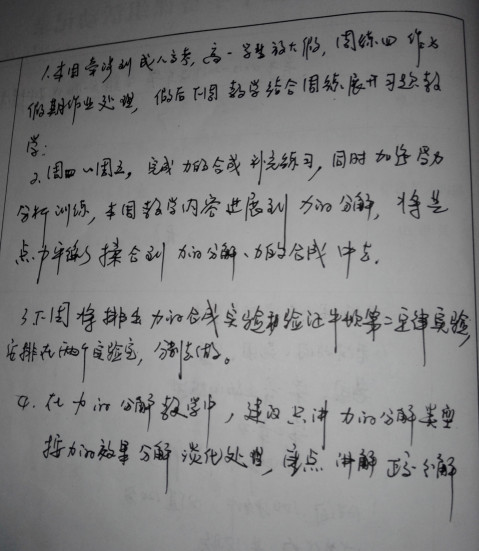 1.本周牵涉到成人高考,高一学生放大假,周练四作为
假期作业处理,假后下周教学结合周练展开习题教
学;
2.周四、周五,完成力的合成补充练习,同时加强受力
分析训练,本周教学内容进展到力的分解,将共
点力平衡 揉合到力的分解、力的合成中去.
3.下周将排出力的合成实验和验证牛顿第二定律实验
安排在两个实验室,分别去做。
4.在力的分解教学中,建议只讲力的分解类型
按力的效果分解淡化处理,重点讲解正交分解